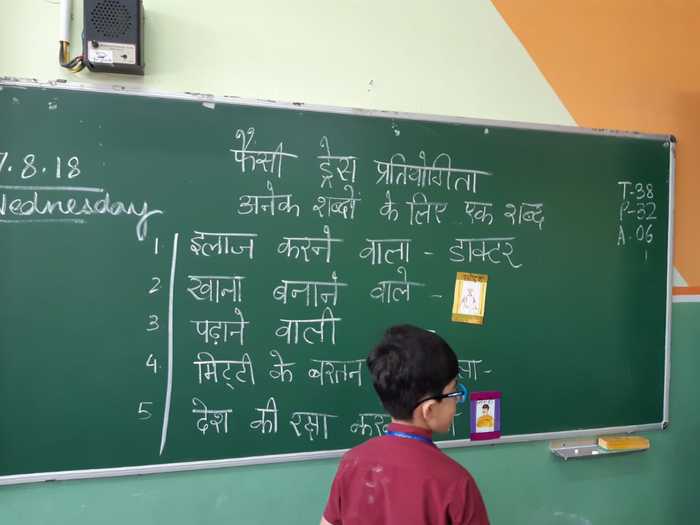 7.8.18
Wednesday
फैंसी ड्रेस प्रतियोगिता
अनेक शब्दों के लिए एक शब्द
T-38
P-32
A.06
1. इलाज करने वाला - डाक्टर
2 खाना बनाने वाले -
3 पढ़ाने वाली
4. मिट्टी के बरतन
5 देश की रक्षा